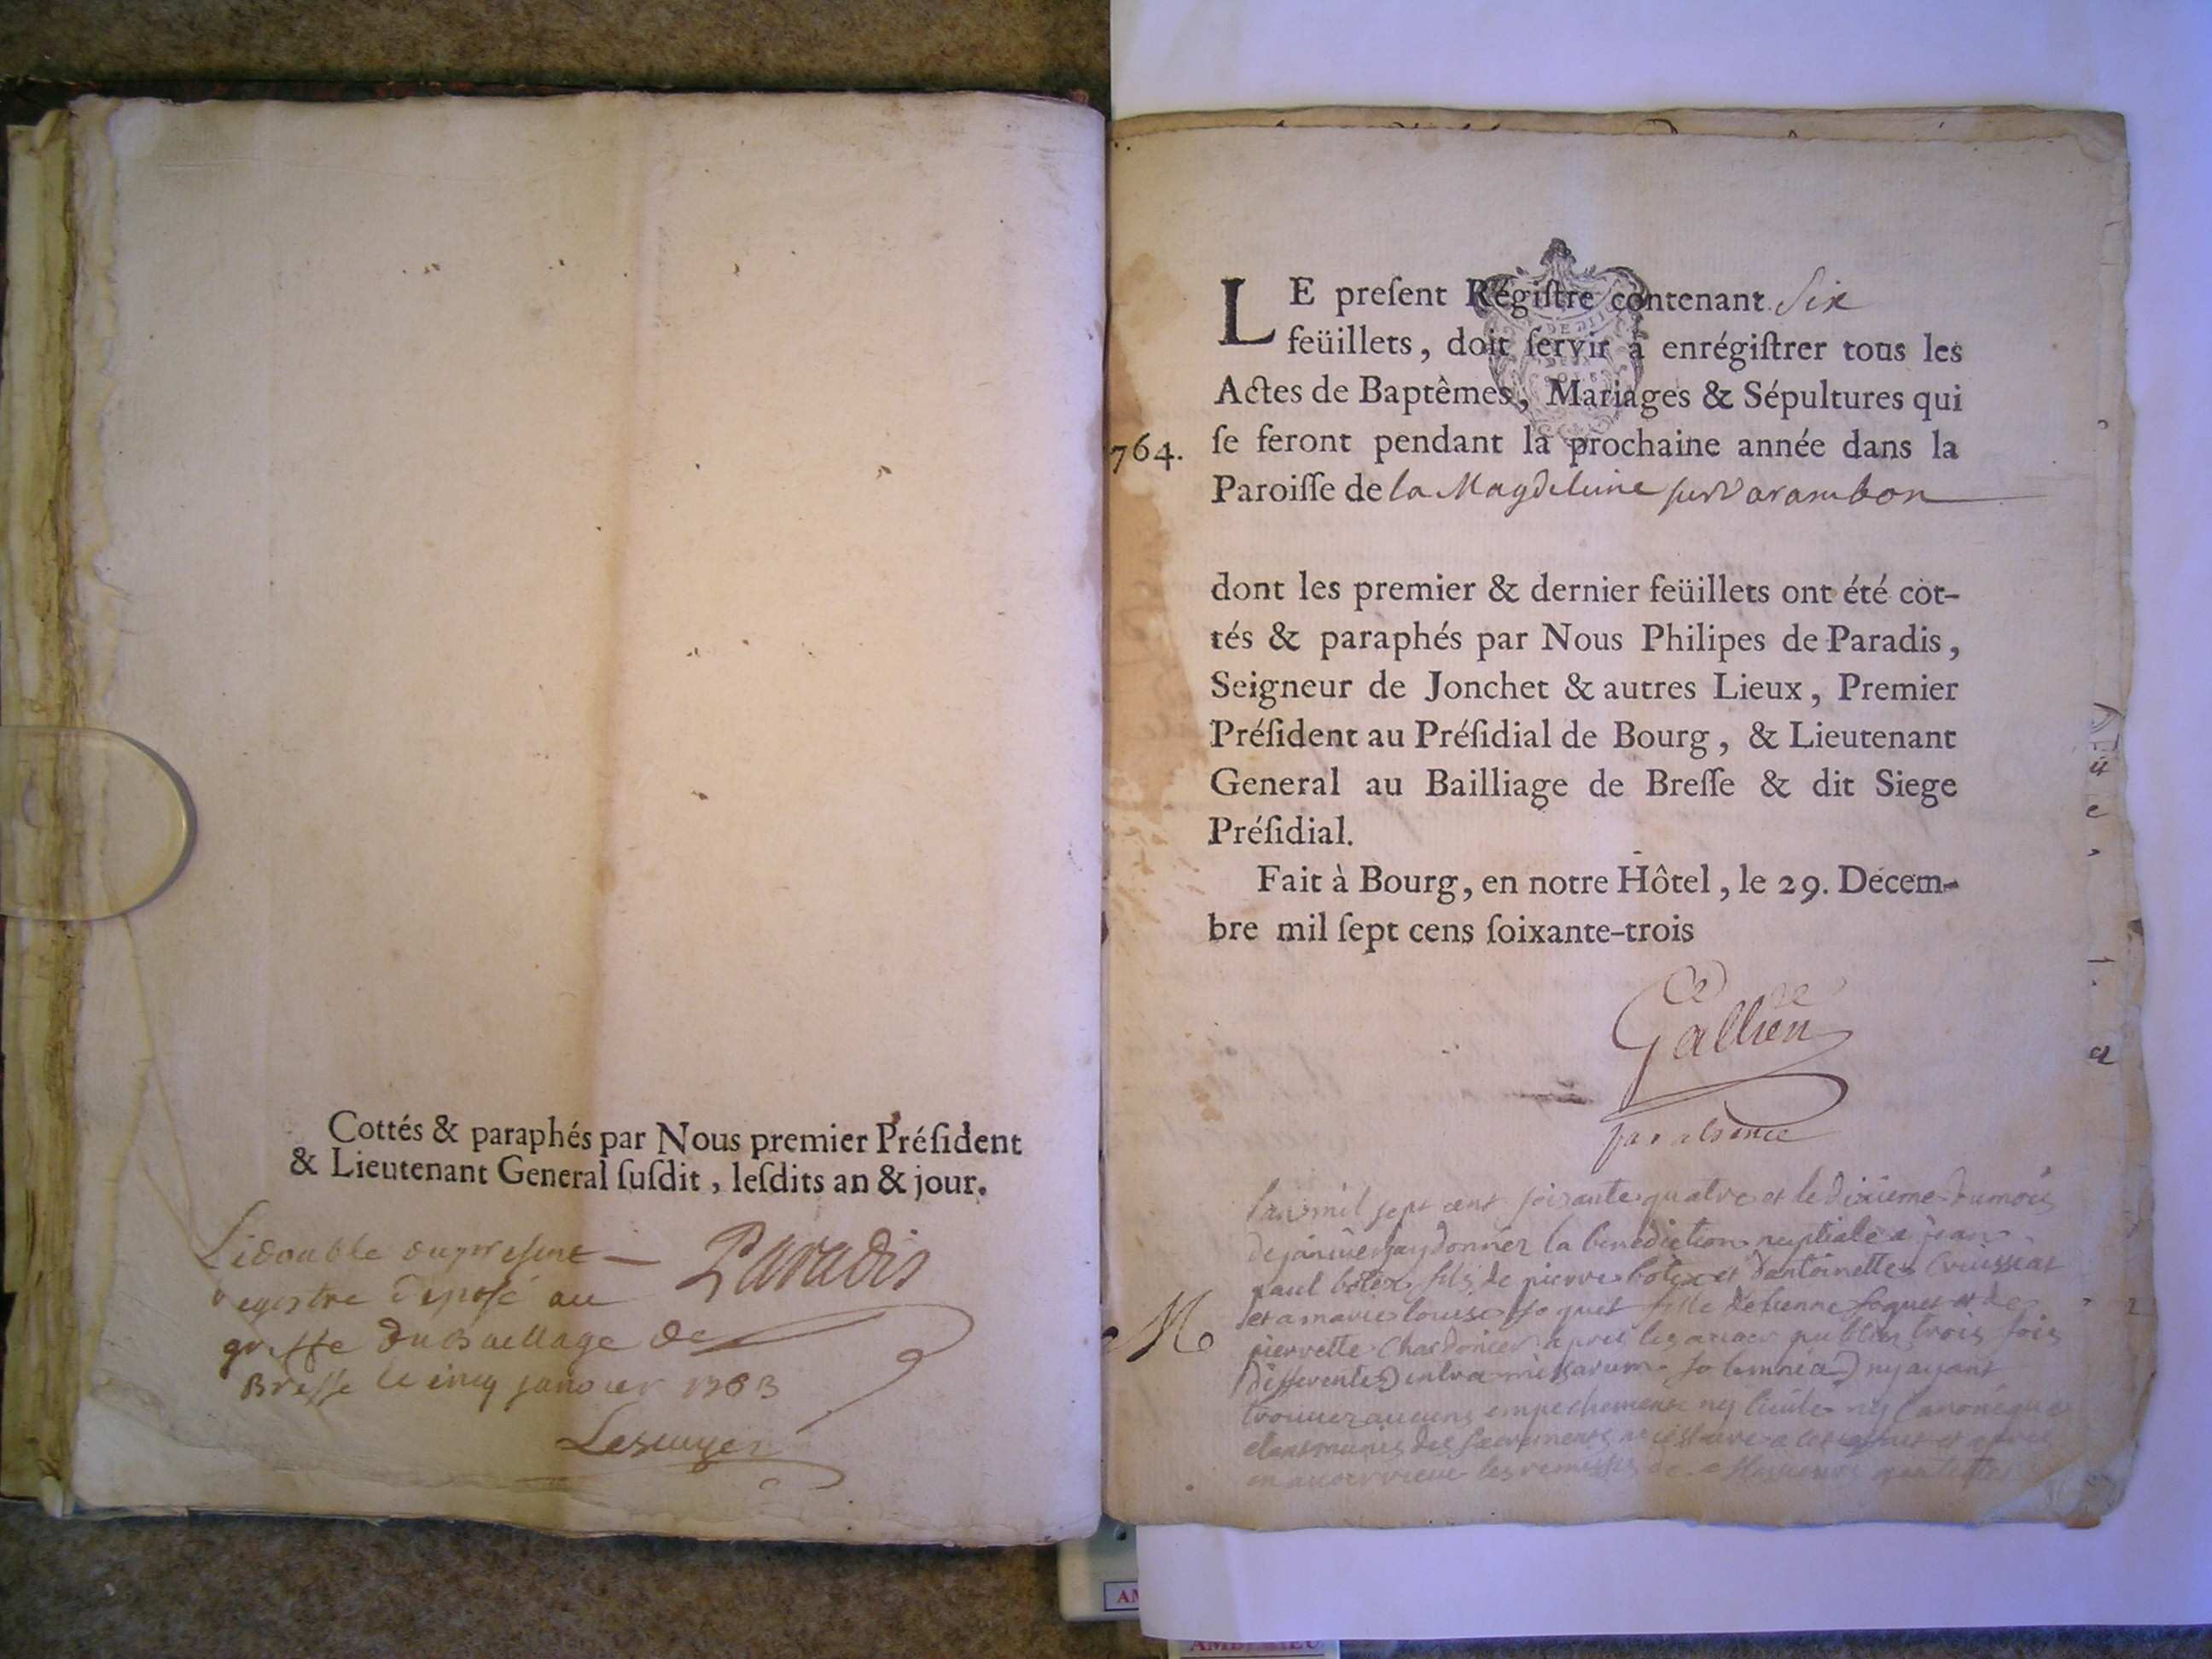 Cottés & paraphés par Nous premier Préſident
& Lieutenant General ſuſdit, leſdits an & jour.
Le double du present
registre deposé au
greffe du Bailliage de
Bresse le cinq janvier 1763
Paradis
Lescuyer
LE preſent Régiſtre contenant Six
feüillets, doit ſervir à enrégiſtrer tous les
Actes de Baptêmes, Mariages & Sépultures qui
764. ſe feront pendant la prochaine année dans la
Paroiſſe de la Magdeleine sur Varambon
dont les premier & dernier feüillets ont été cot-
tés & paraphés par Nous Philipes de Paradis,
Seigneur de Jonchet & autres Lieux, Premier
Préſident au Préſidial de Bourg, & Lieutenant
General au Bailliage de Breſſe & dit Siege
Préſidial.
Fait à Bourg, en notre Hôtel, le 29. Décem-
bre mil ſept cens ſoixante-trois
Gallien
par absence
Lan mil sept cent soixante quatre et le dixieme du mois
de janvier jay donner la benediction nuptiale a jean
paul botex fils de pierre botex et dantoinette
et a marie louise foquet fille detienne foquet et de
M
pierrette Chardonier apres les avoir publier trois fois
differentes intra missarum solemnia ny ayant
trouver aucuns empechement ny Civile ny Canonique
étant munis des sacrements
en avoir les remises de